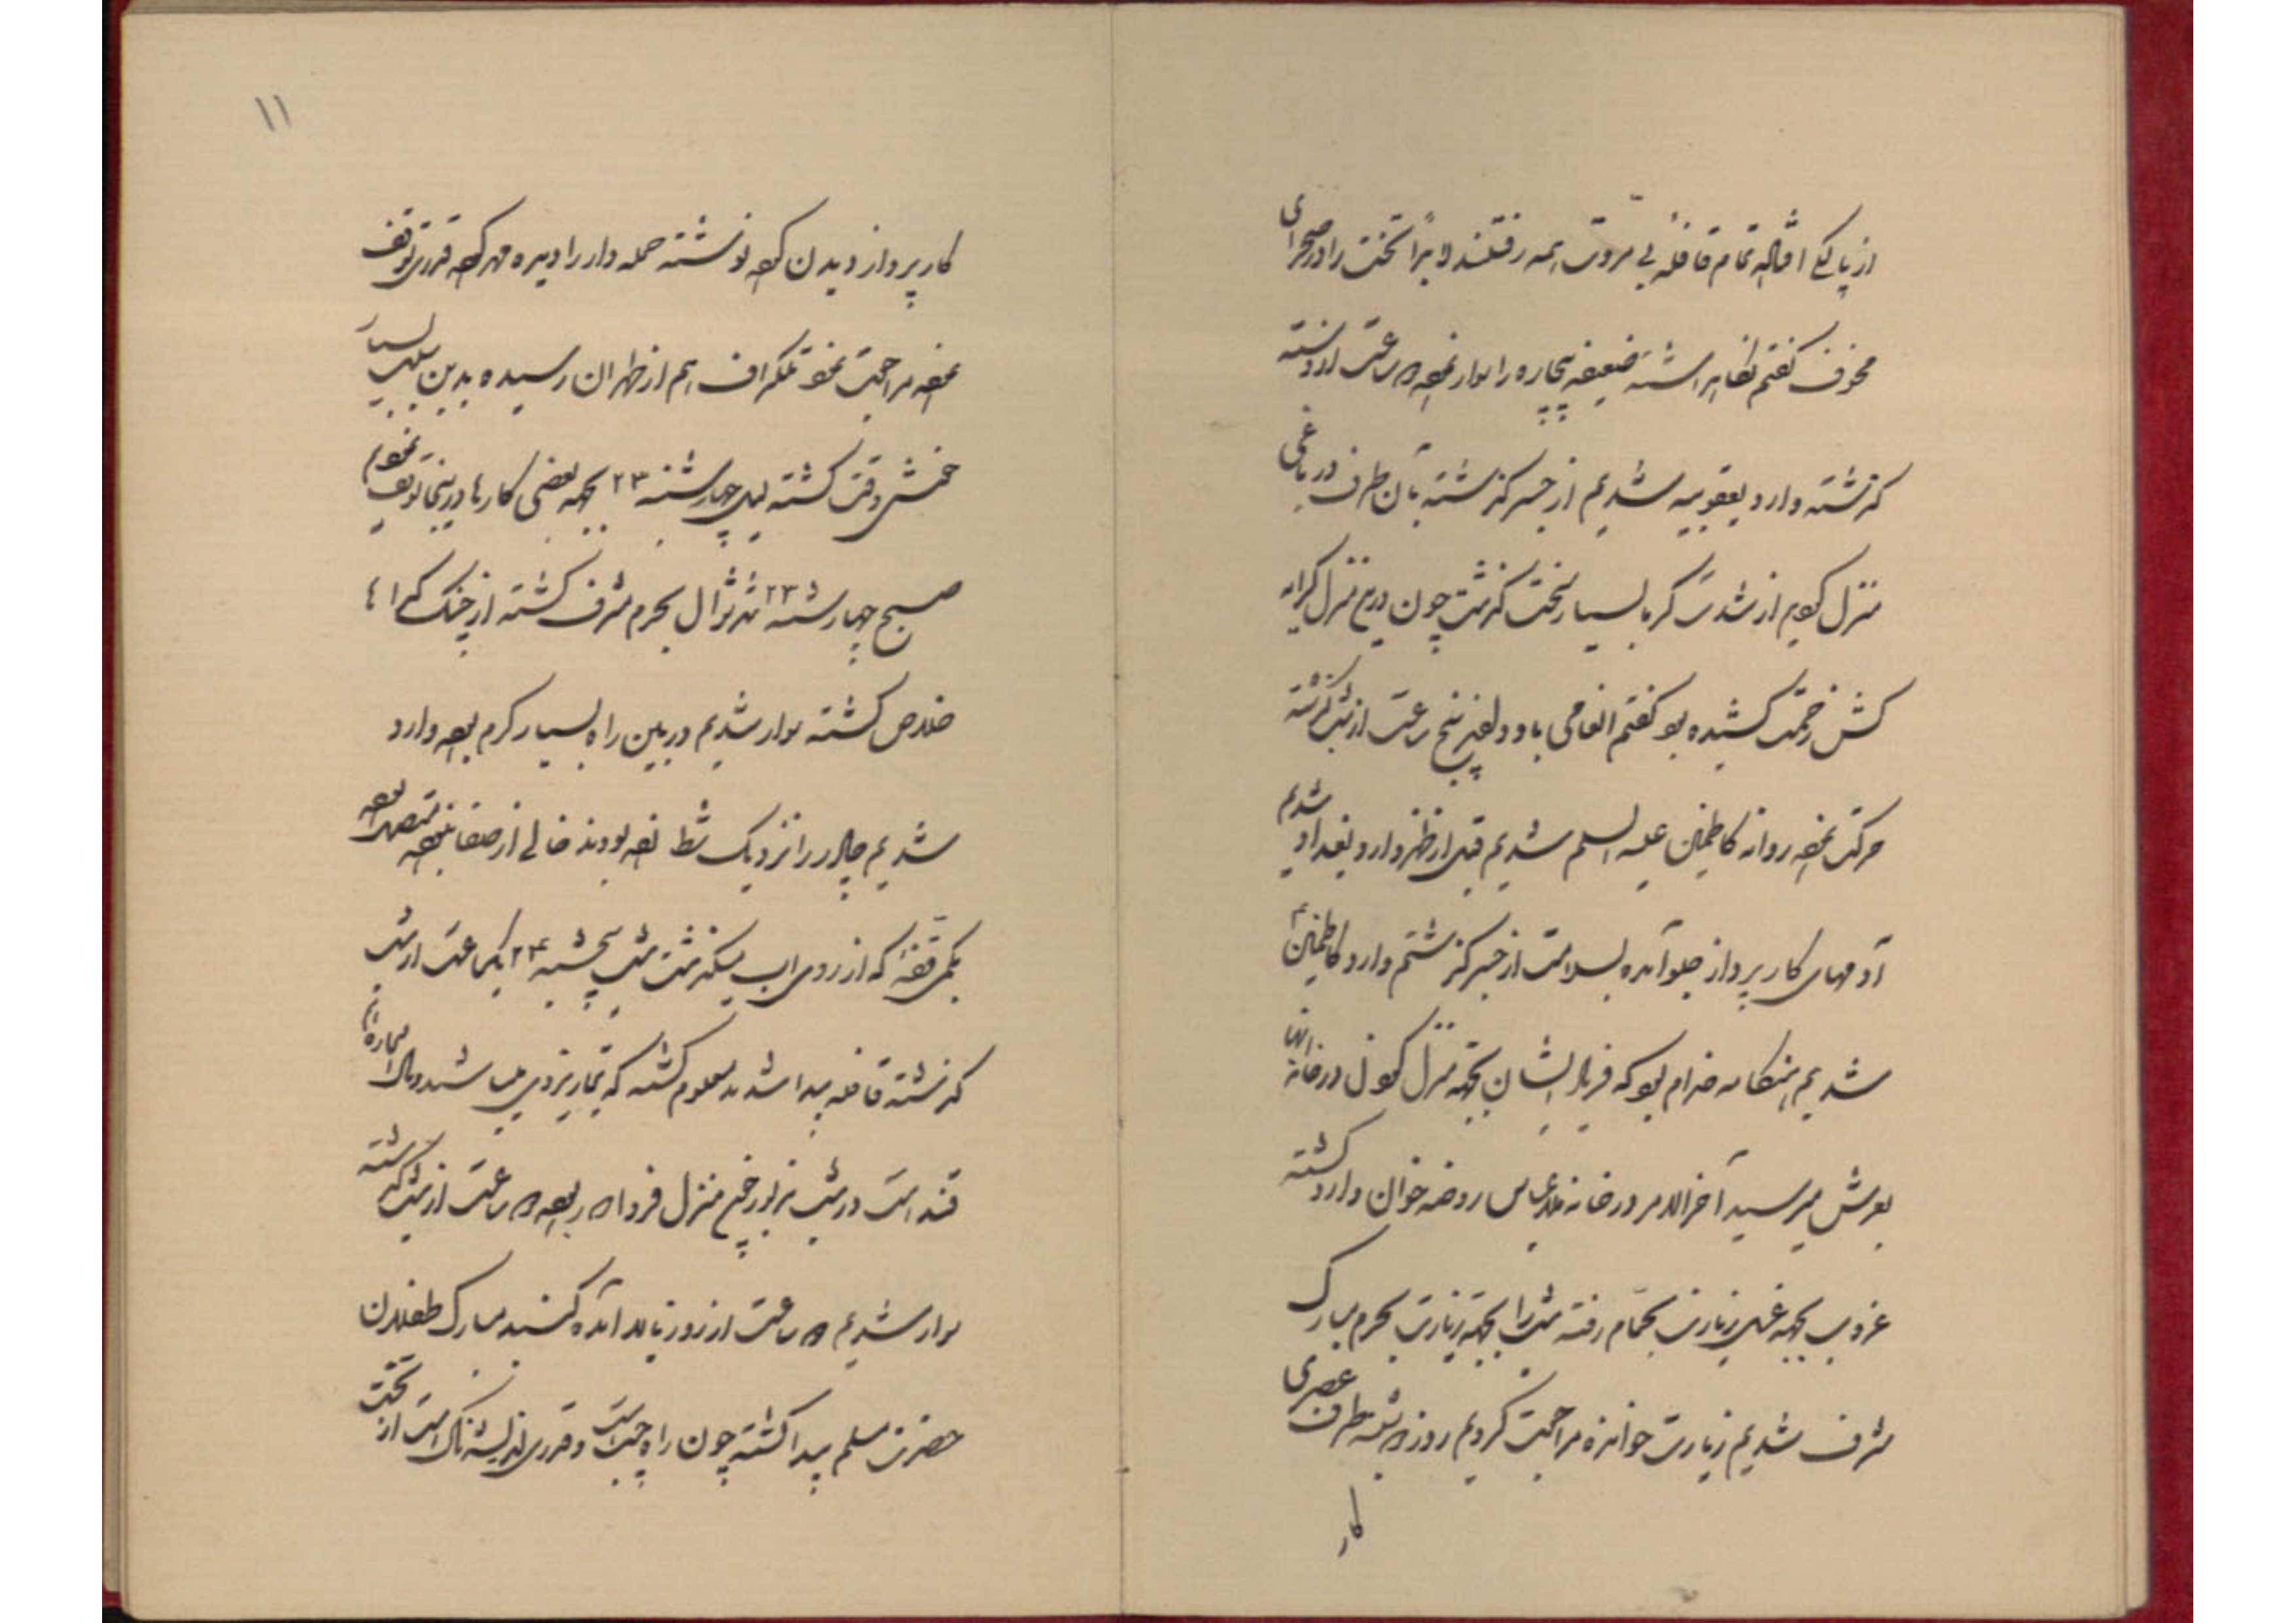 از پاکی افتاله تمام قافله بی مروت همه رفتند لابداً تخت را در صحرای
مخوف گفتم نگاهداشته ضعیفه بیچاره را سوار نموده ساعت از دسته
گذشته وارد یعقوبیه شدیم از جسر گذشته بآن طرف در باغی
منزل کردیم از شدت گرما بسیار سخت گذشت چون در این منزل کرایه
کش زحمت کشیده بود گفتم انعامی باو دادند پنج ساعت از شب گذشته
حرکت نموده روانه کاظمین علیه السلم شدیم قبل از ظهر وارد بغداد شدیم
آدمهای کارپرداز جلو آمده بسلامت از جسر گذشتم وارد کاظمین ع
شدیم هنگامه خدام بود که فریاد ایشان بجهة منزل کردن در خانه آنها
بعرش میرسید آخرالامر در خانه ملا عباس روضه خوان وارد گشته
غروب بجهة غسل زیارت بحمام رفته شب را بجهة زیارت بحرم مبارک
مشرف شدیم زیارت خوانده مراجعت کردیم روز سه شنبه طرف عصری
کار
۱۱
کارپرداز دیدن کرده نوشته حمله دار را دیده مهر کرده قدری توقف
نموده مراجعت نمود تلگراف هم از طهران رسیده بدین سبب بسیار
خوش وقت گشته لیله چهارشنبه ۲۳ بجهة بعضی کارها در اینجا توقف نمودم
صبح چهارشنبه ۲۳ شهر شوال بحرم مشرف گشته از چنگ گداها
خلاص گشته سوار شدیم در بین راه بسیار گرم بود وارد
شدیم چادر را نزدیک شط زده بودند خالی از صفا نبود متصل بود
بکمی قفه که از روی آب میگذشت شب پنجشنبه ۲۴ یکساعت از شب
گذشته قافله پیدا شدند معلوم گشته که تجار یزدی میباشند و مال التجاره
قند است در شب مزبور چون منزل فردا دور بود ساعت از شب گذشته
سوار شدیم ساعت از روز بالا آمده گنبد مبارک طفلان
حضرت مسلم پیدا گشته چون راه چپ است و قدری اندیشه ناک است از تخت